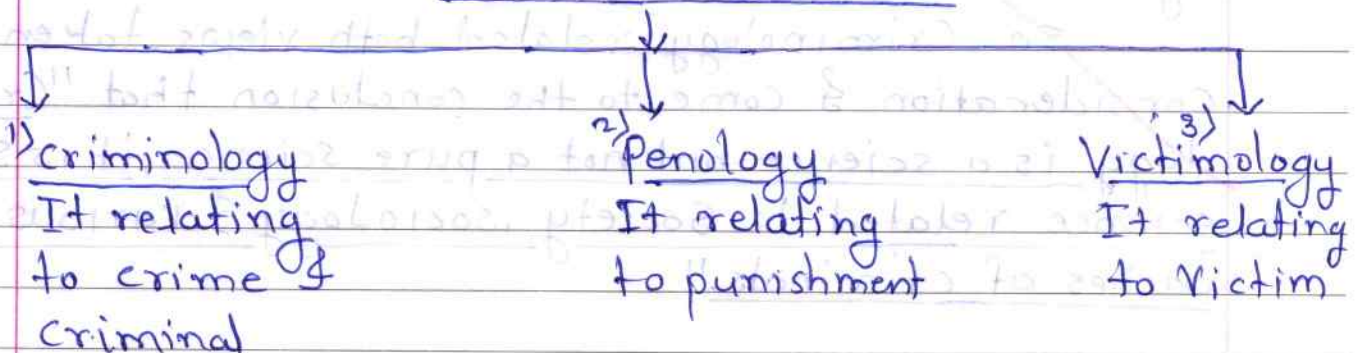 1) criminology
It relating
to crime &
criminal
2) Penology
It relating
to punishment
3) Victimology
It relating
to Victim